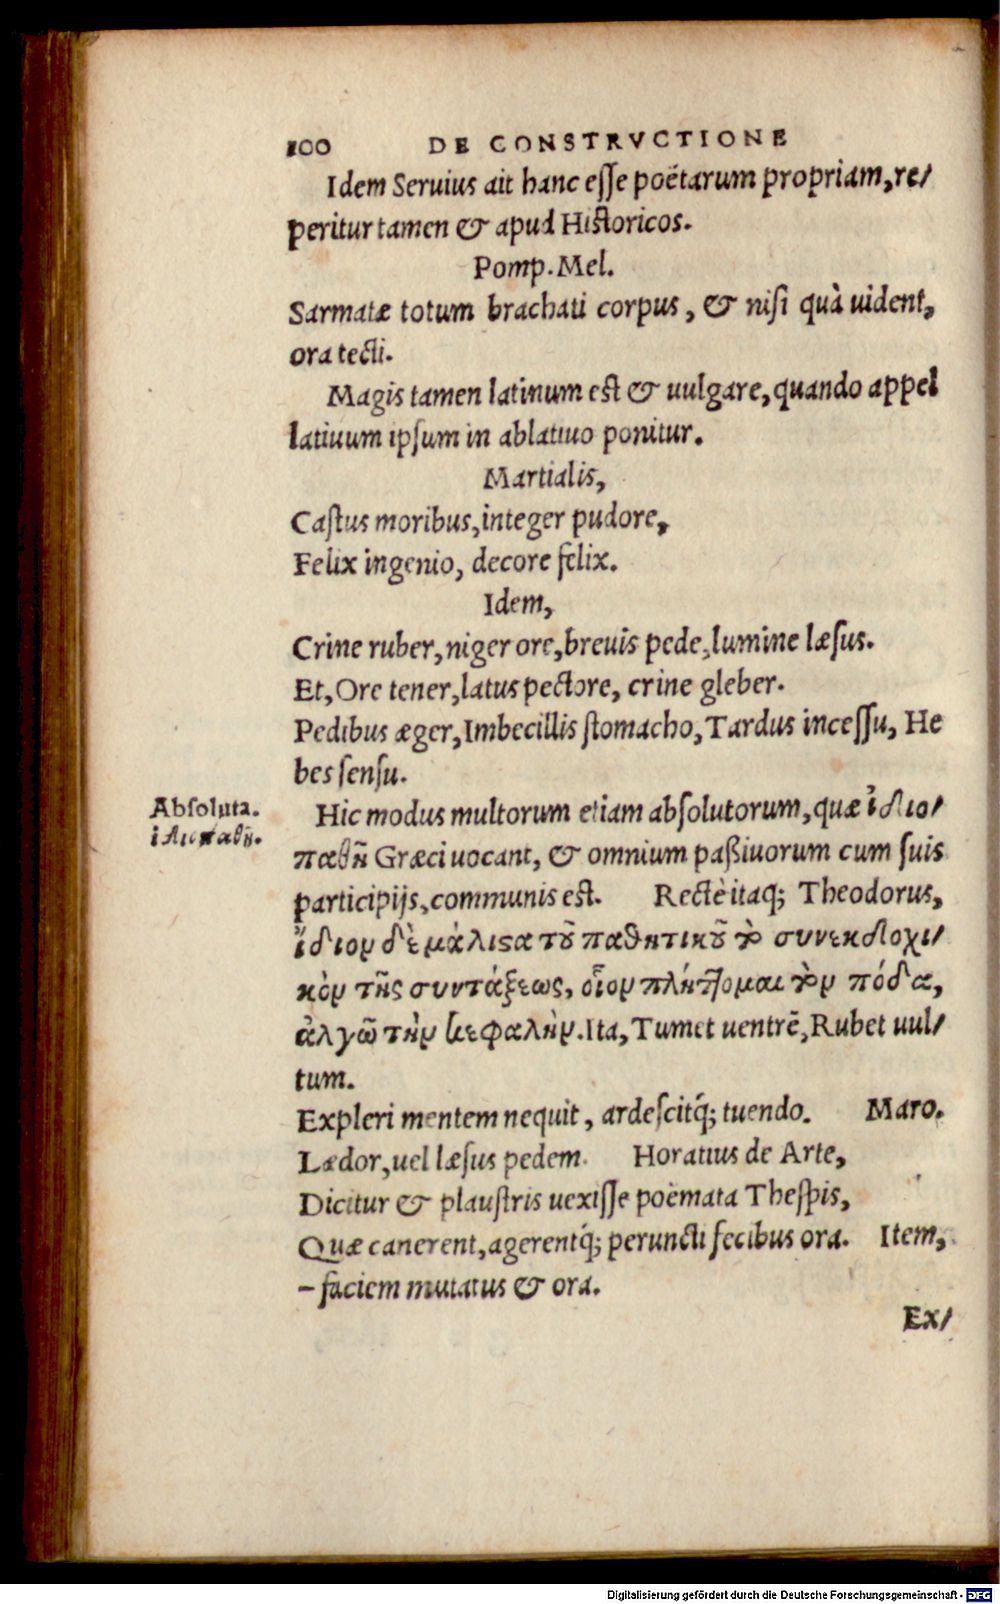 100 DE CONSTRVCTIONE
Idem Seruius ait hanc eſſe poëtarum propriam, re/
peritur tamen & apud Hiſtoricos.
Pomp. Mel.
Sarmatæ totum brachati corpus, & niſi quà uident,
ora tecti.
Magis tamen latinum eſt & uulgare, quando appel
latiuum ipſum in ablatiuo ponitur.
Martialis,
Caſtus moribus, integer pudore,
Felix ingenio, decore felix.
Idem,
Crine ruber, niger ore, breuis pede, lumine læſus.
Et, Ore tener, latus pectore, crine gleber.
Pedibus æger, Imbecillis ſtomacho, Tardus inceſſu, He
bes ſenſu.
Abſoluta.
ἰδιοπαθῆ.
Hic modus multorum etiam abſolutorum, quæ ἰδιο/
παθῆ Græci uocant, & omnium paßiuorum cum ſuis
participijs, communis eſt. Rectè itaq; Theodorus,
ἴδιον δὲ μάλιςα τοῦ παθητικοῦ τὸ συνεκδοχι/
κὸν τῆς συντάξεως, οἷον πλήττομαι τὸν πόδα,
ἀλγῶ τὴν κεφαλὴν. Ita, Tumet uentrē, Rubet uul/
tum.
Expleri mentem nequit, ardeſcitq́; tuendo. Maro.
Lædor, uel læſus pedem. Horatius de Arte,
Dicitur & plauſtris uexiſſe poëmata Theſpis,
Quæ canerent, agerentq́; peruncti fecibus ora. Item,
– faciem mutatus & ora.
Ex/
Digitalisierung gefördert durch die Deutsche Forschungsgemeinschaft - DFG